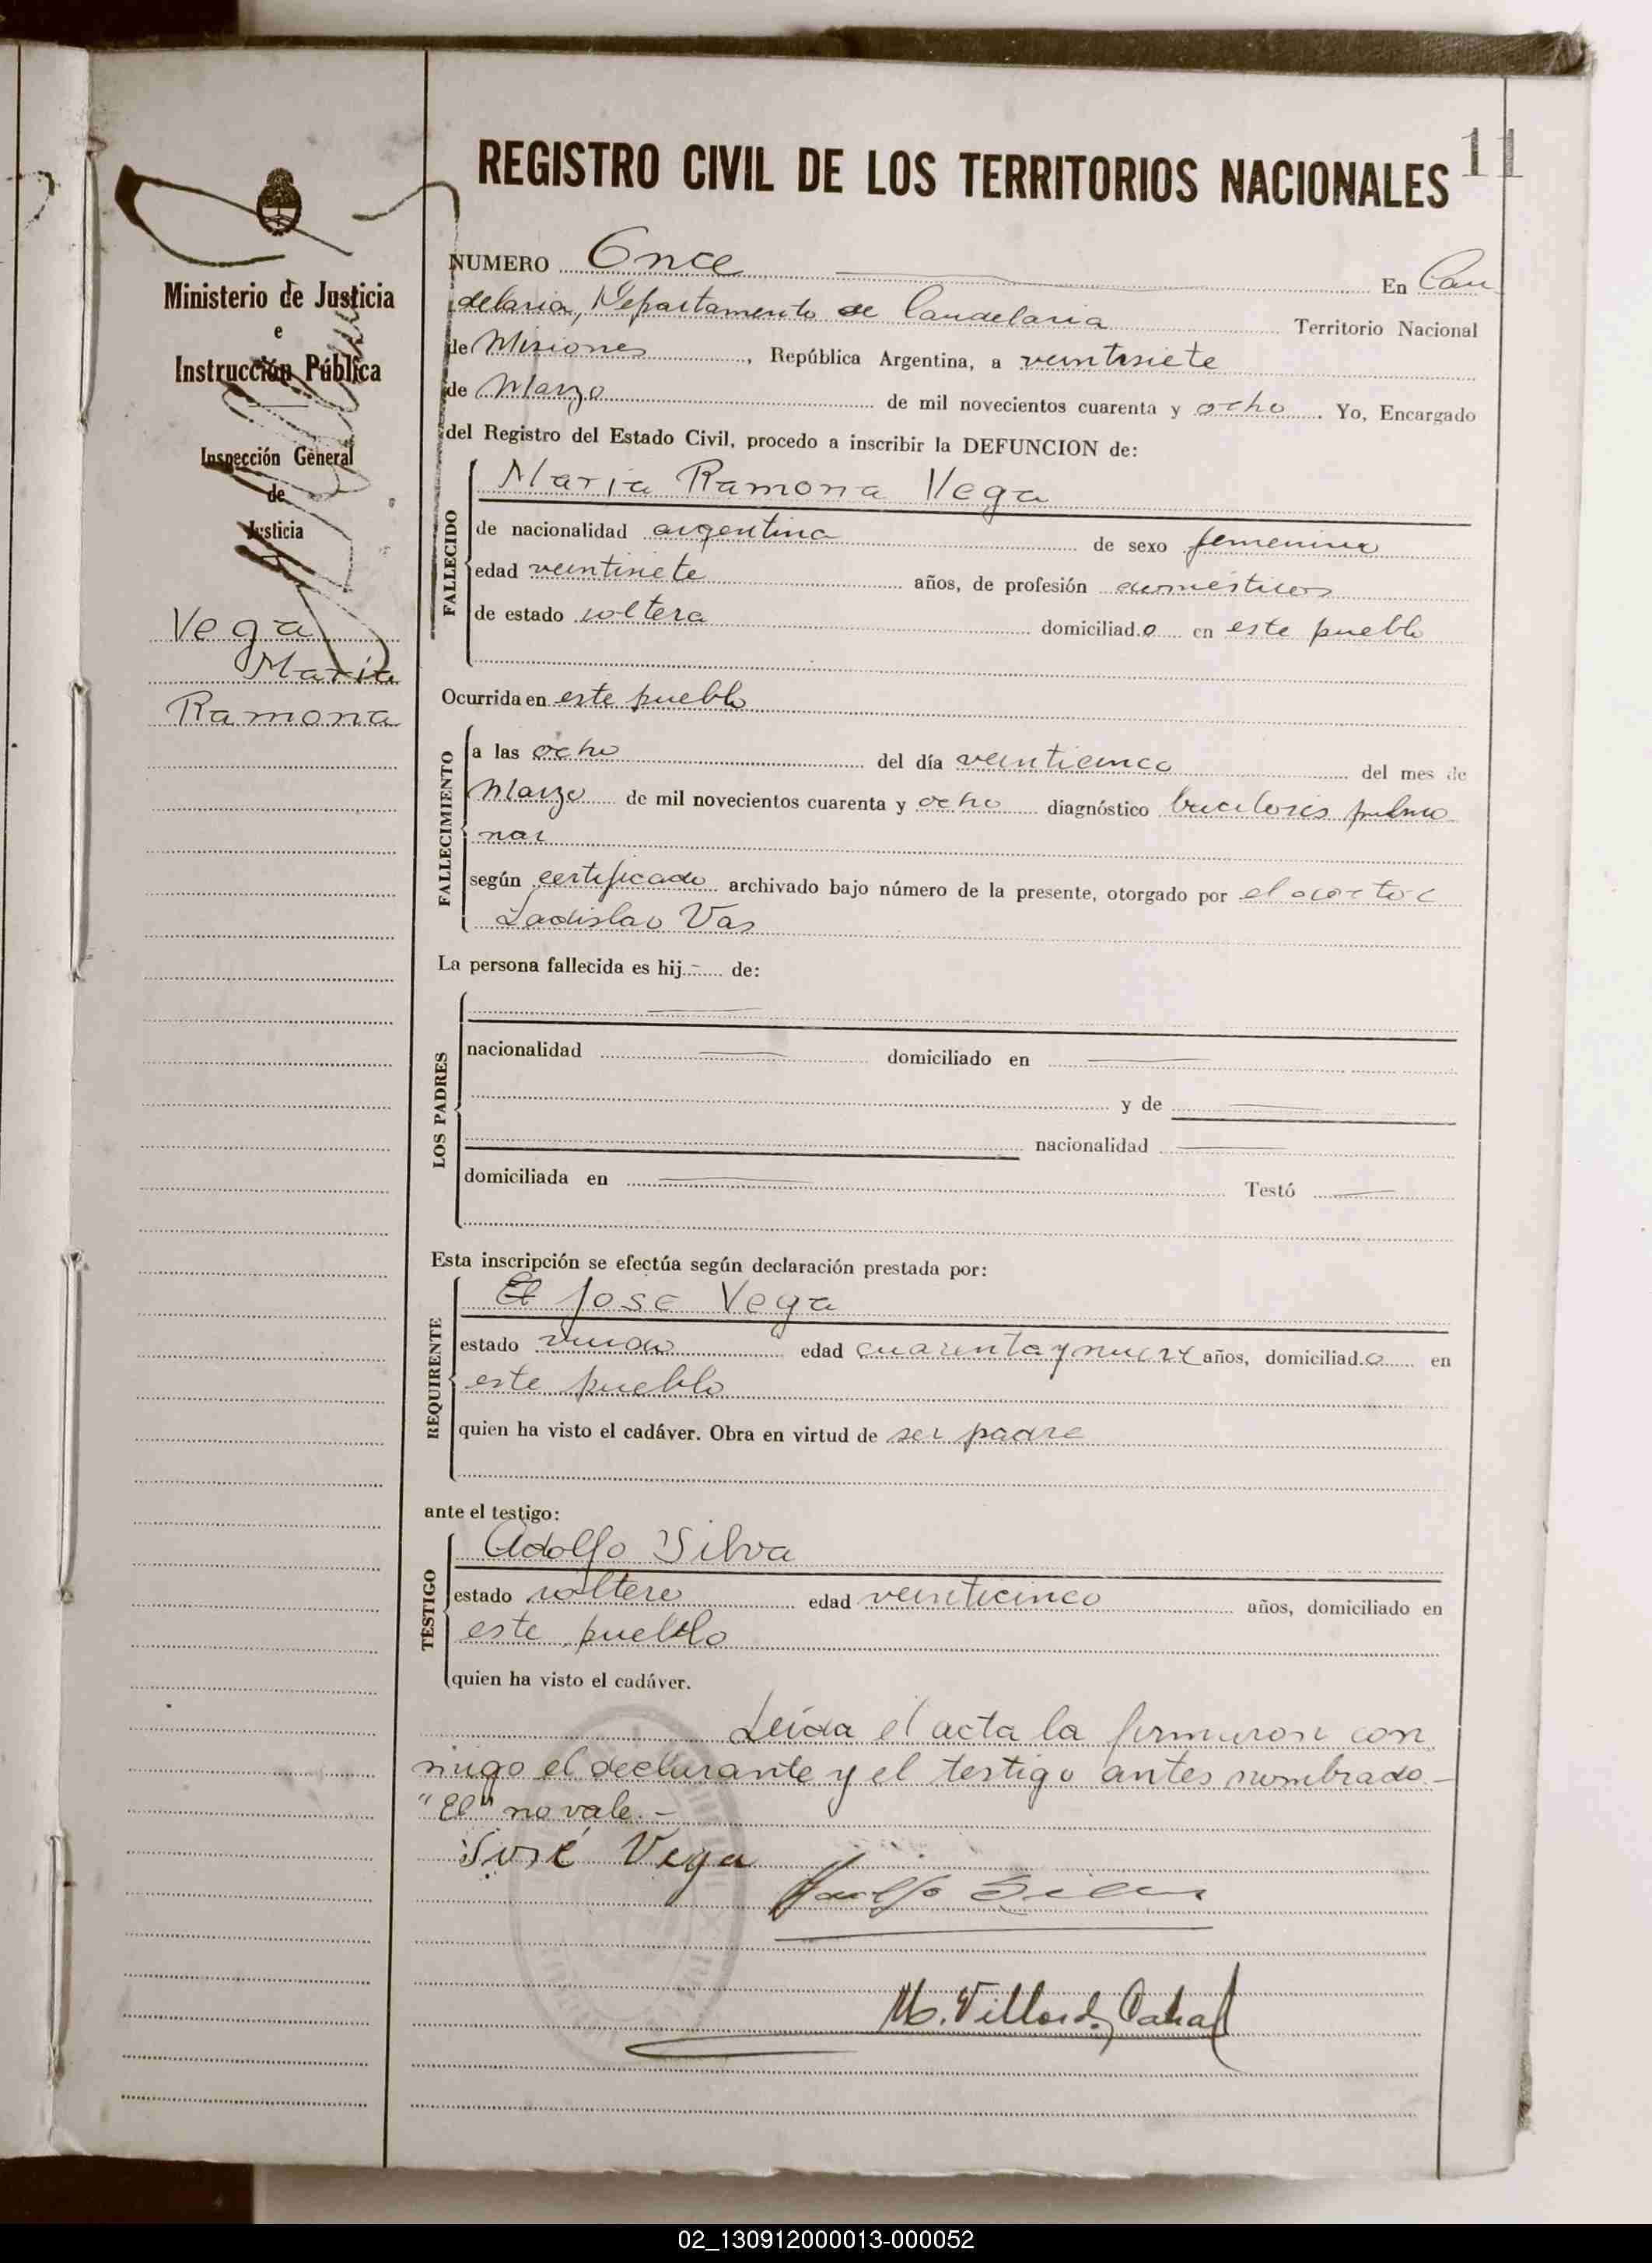 11
REGISTRO CIVIL DE LOS TERRITORIOS NACIONALES
Ministerio de Justicia
e
Instrucción Pública
Inspección General
de
Justicia
Vega
Maria
Ramona
NUMERO Once En Can
delaria, Departamento de Candelaria Territorio Nacional
de Misiones, República Argentina, a veintisiete
de Marzo de mil novecientos cuarenta y ocho. Yo, Encargado
del Registro del Estado Civil, procedo a inscribir la DEFUNCION de:
FALLECIDO
Maria Ramona Vega
de nacionalidad argentina de sexo femenino
edad veintisiete años, de profesión domésticos
de estado soltera domiciliado en este pueblo
Ocurrida en este pueblo
FALLECIMIENTO
a las ocho del día veinticinco del mes de
Marzo de mil novecientos cuarenta y ocho diagnóstico pulmo
nar
según certificado archivado bajo número de la presente, otorgado por el doctor
Ladislao Vas
La persona fallecida es hij- de:
LOS PADRES
nacionalidad domiciliado en
y de
nacionalidad
domiciliada en Testó
Esta inscripción se efectúa según declaración prestada por:
REQUIRENTE
El Jose Vega
estado viudo edad cuarenta y nueve años, domiciliado en
este pueblo
quien ha visto el cadáver. Obra en virtud de ser padre
ante el testigo:
TESTIGO
Adolfo Silva
estado soltero edad veinticinco años, domiciliado en
este pueblo
quien ha visto el cadáver.
Leida el acta la firmaron con
migo el declarante y el testigo antes nombrado.-
"El" no vale.-
José Vega
Adolfo Silva
M. Villordo Cabral
02_130912000013-000052